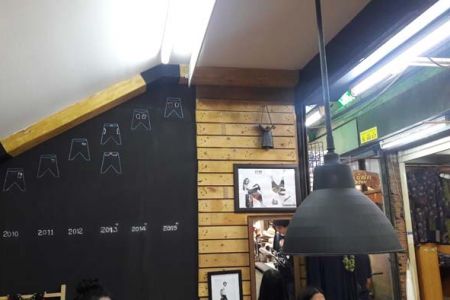 2010 2011 2012 2013 2014 2015